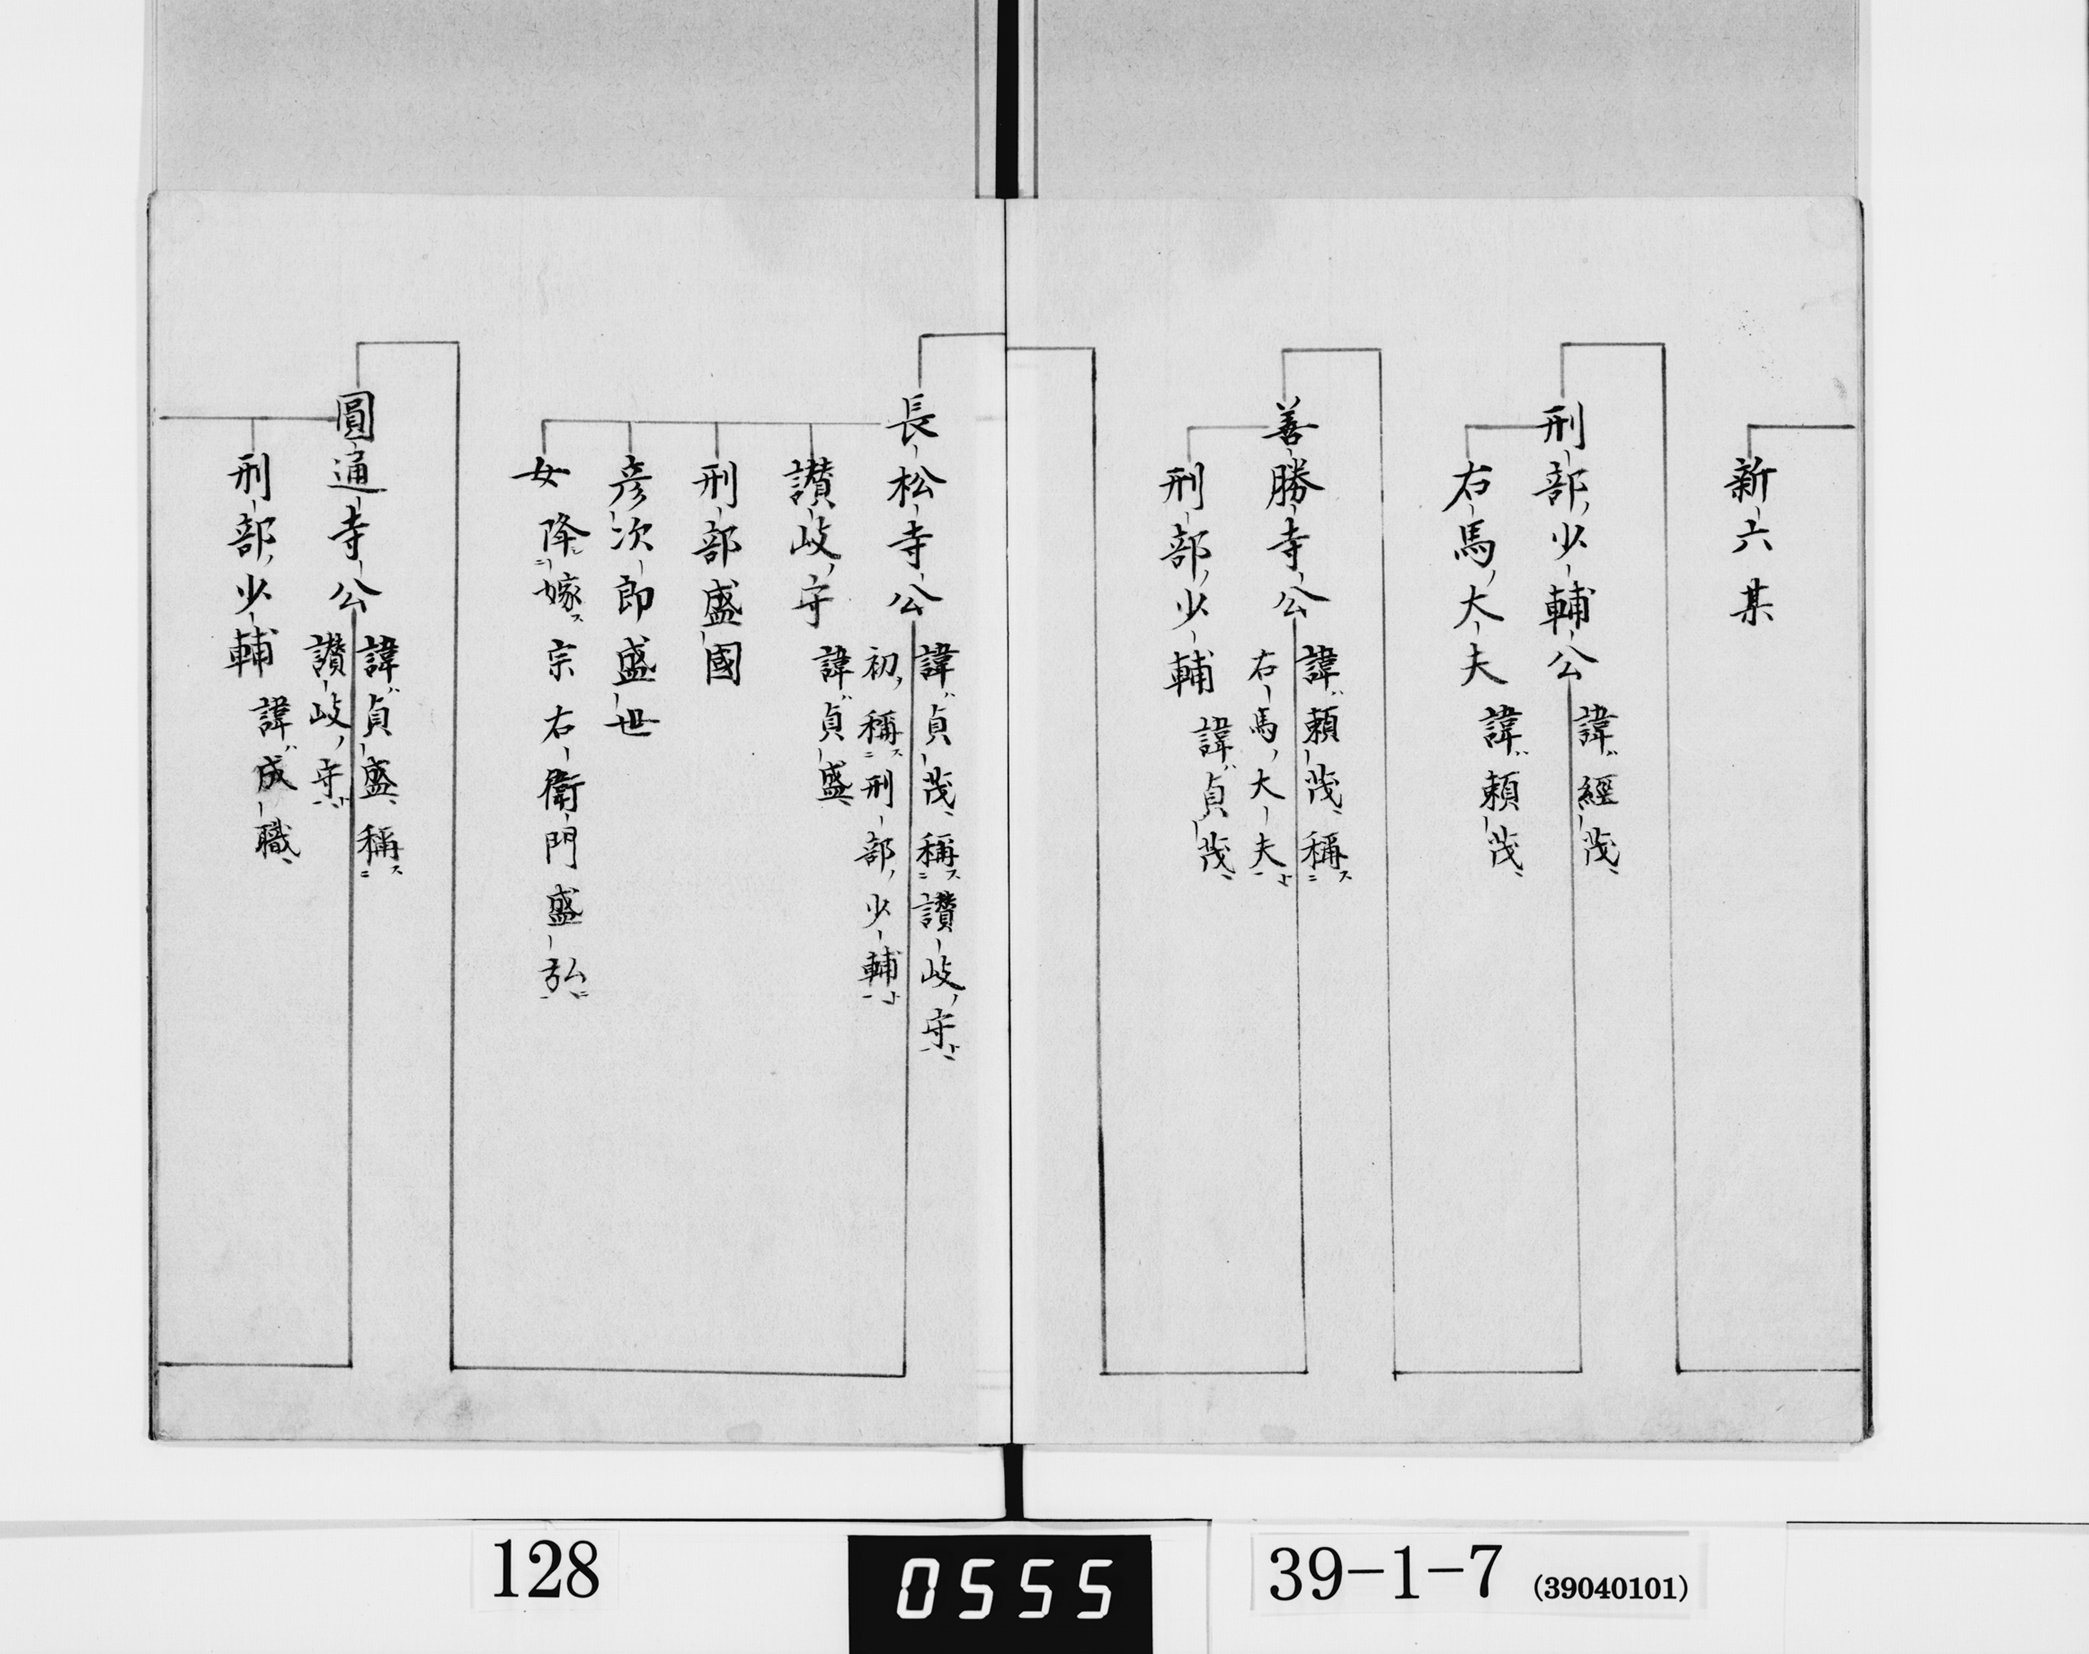 新六某
刑部少輔公
諱ハ經茂
右馬大夫
諱ハ賴茂
善勝寺公
諱ハ賴茂稱ス
右馬大夫ト
刑部少輔
諱ハ貞茂
長松寺公
諱ハ貞茂稱ス讃岐守ト
初稱ス刑部少輔ト
讃岐守
諱ハ貞盛
刑部盛國
彦次郎盛世
女降嫁ス宗右衛門盛弘ニ
圓通寺公
諱ハ貞盛稱ス
讃岐守ト
刑部少輔
諱ハ成職
128
0555
39-1-7 (39040101)